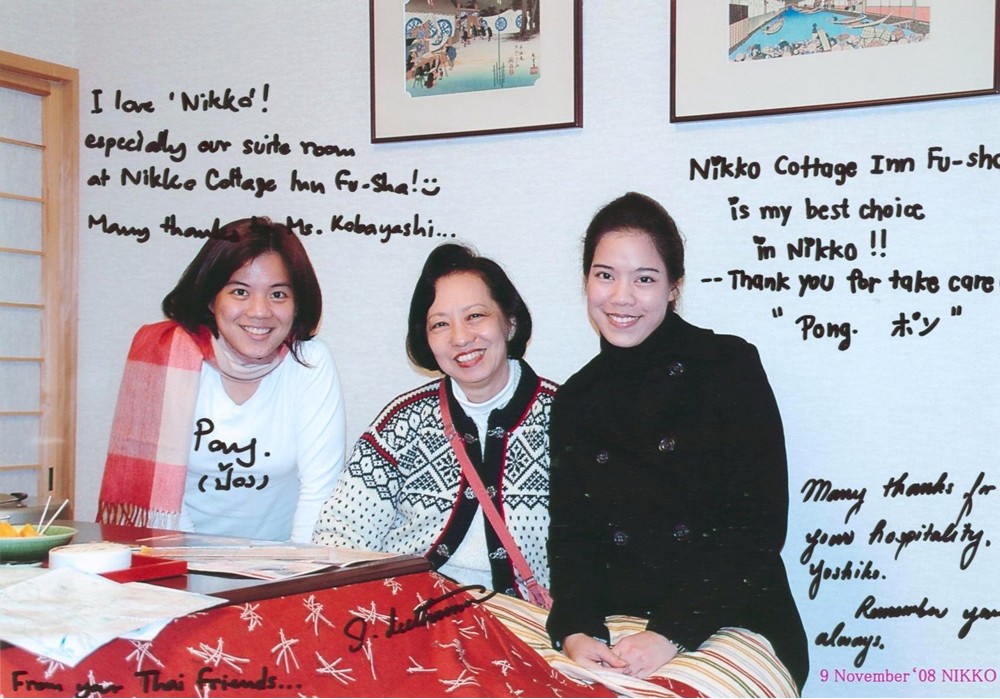 I love 'Nikko'!
especially our suite room
at Nikko Cottage Inn Fu-Sha! ☺
Many thanks to Ms. Kobayashi...
Nikko Cottage Inn Fu-sha
is my best choice
in Nikko !!
-- Thank you for take care
" Pong. ポン "
Pong.
(ป้อง)
Many thanks for
your hospitality,
Yoshiko.
Remember you
always.
From your Thai friends...
9 November '08 NIKKO